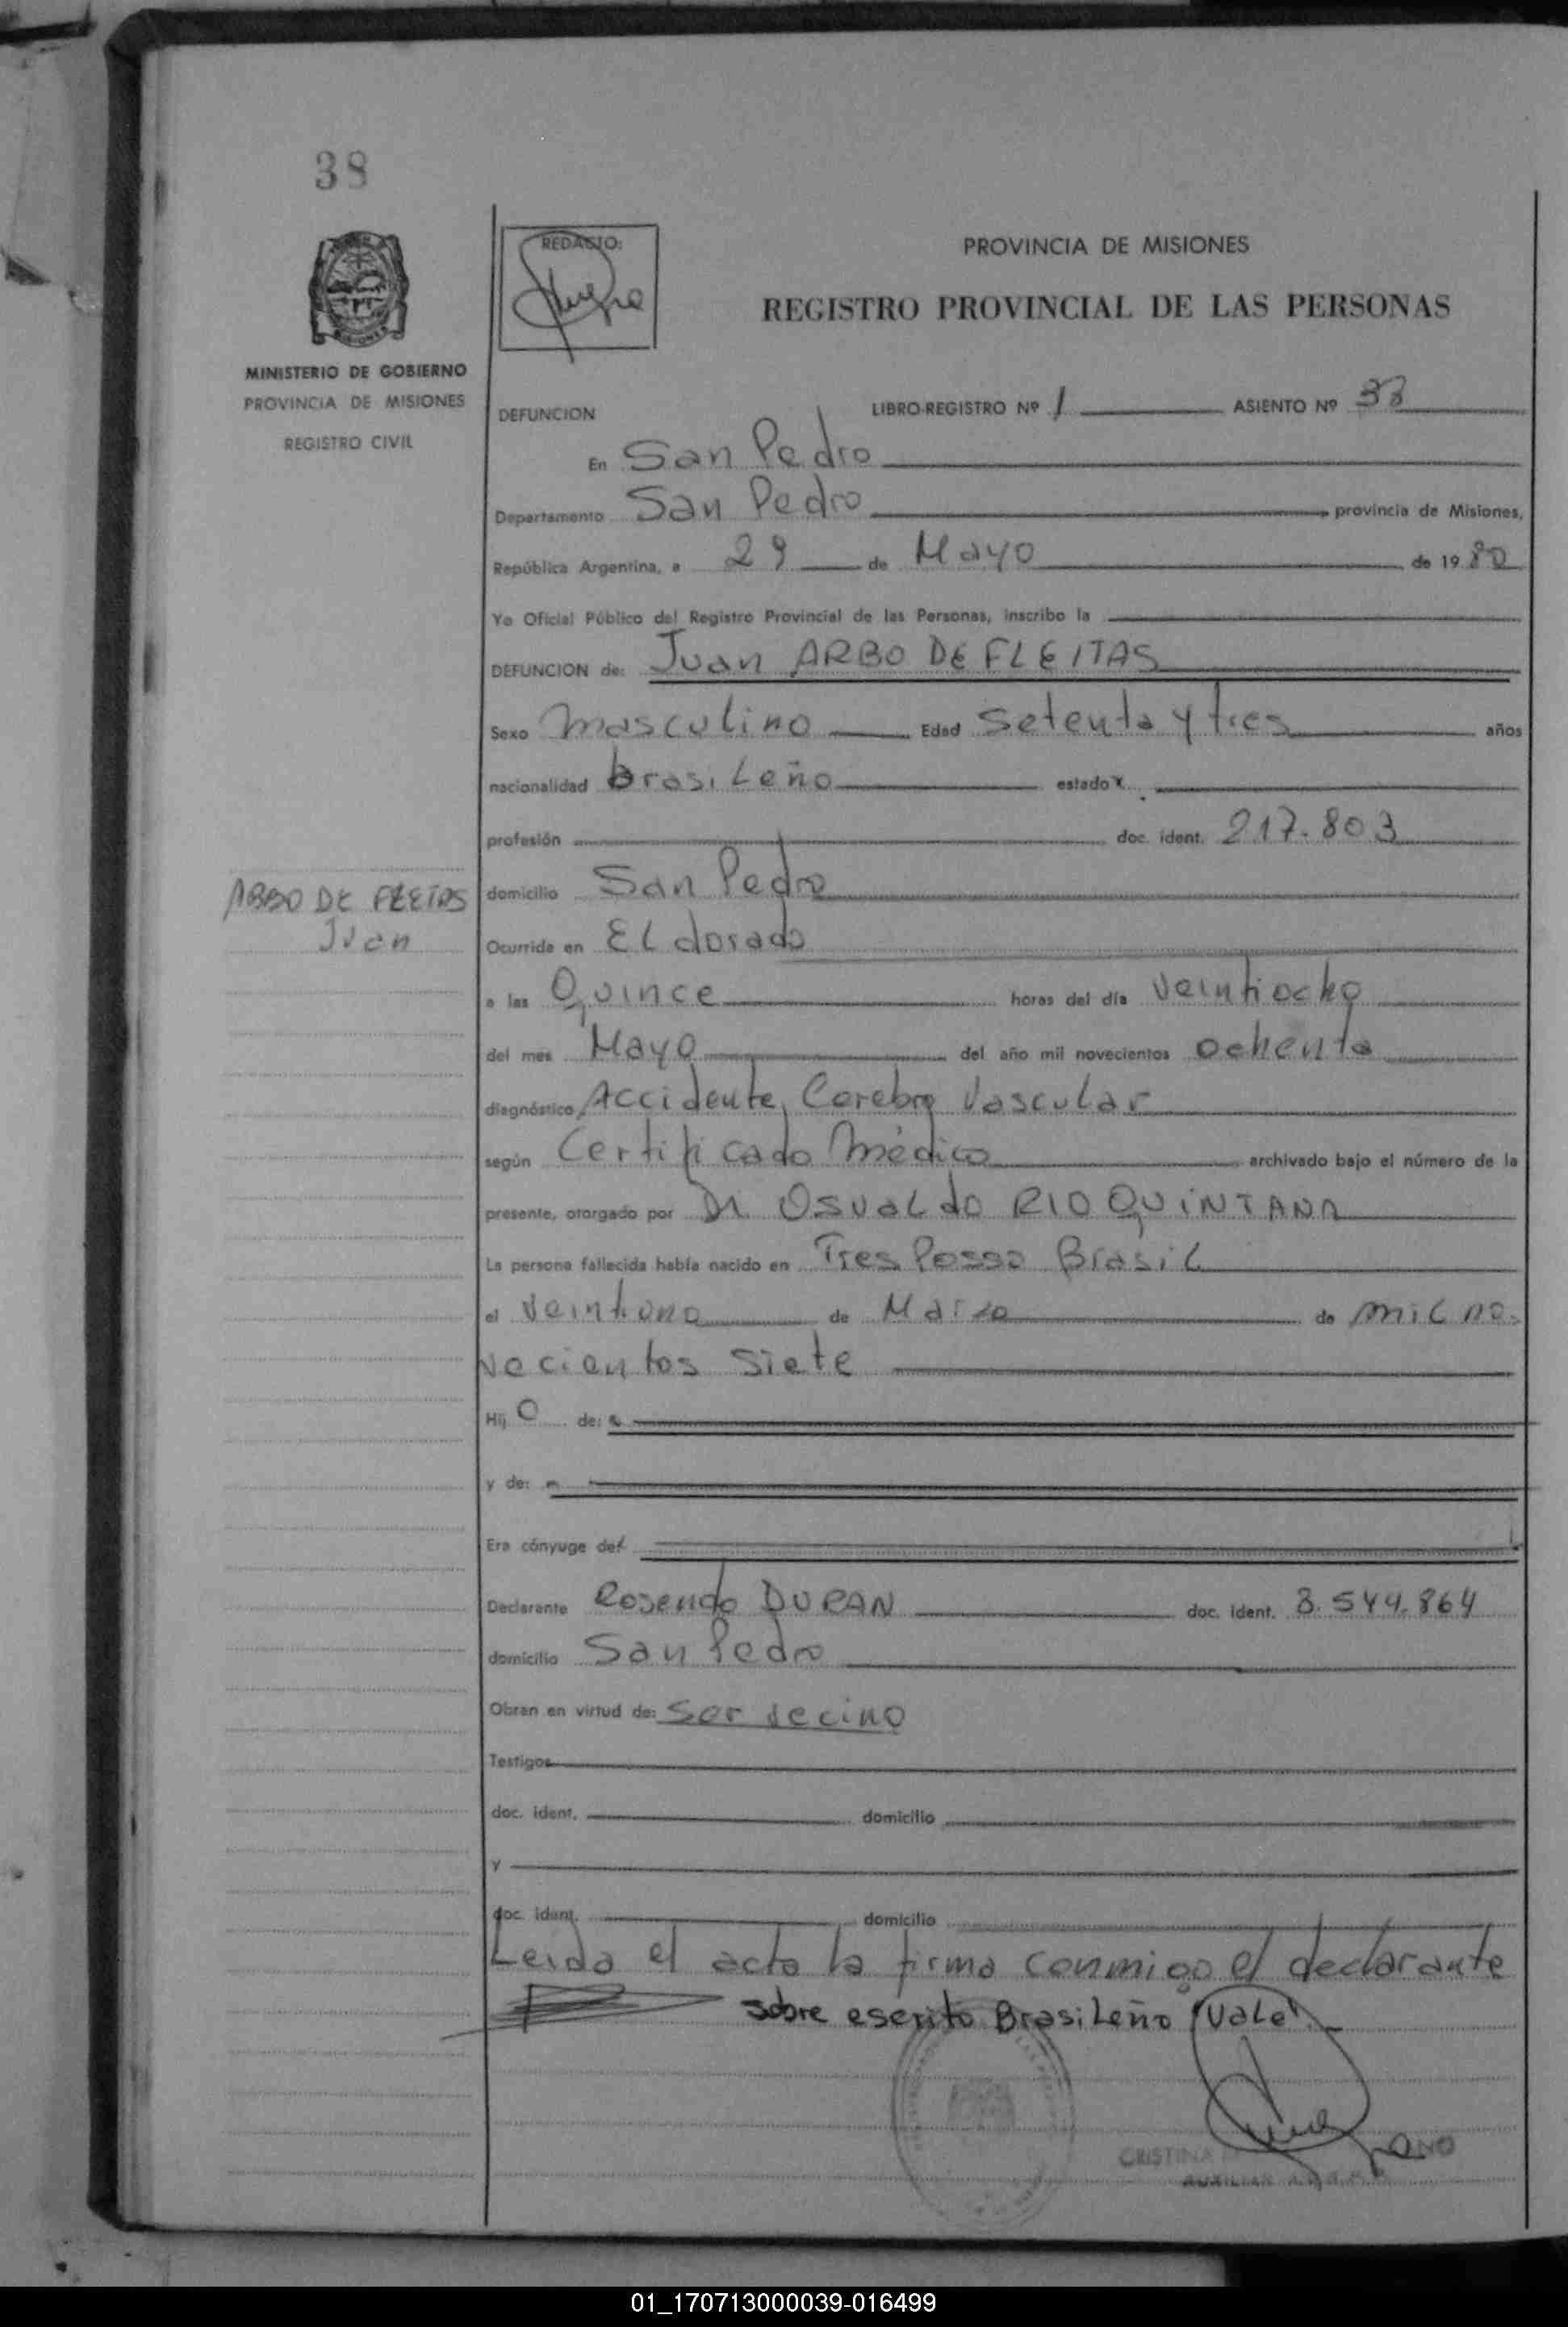 38
MINISTERIO DE GOBIERNO
PROVINCIA DE MISIONES
REGISTRO CIVIL
REDACTO:
PROVINCIA DE MISIONES
REGISTRO PROVINCIAL DE LAS PERSONAS
DEFUNCION LIBRO-REGISTRO Nº 1 ASIENTO Nº 38
En San Pedro
Departamento San Pedro provincia de Misiones,
República Argentina, a 29 de Mayo de 1980
Yo Oficial Público del Registro Provincial de las Personas, inscribo la
DEFUNCION de: Juan ARBO DE FLEITAS
Sexo masculino Edad setenta y tres años
nacionalidad brasileño estado
profesión doc. ident. 217.803
ARBO DE FLEITAS
Juan
domicilio San Pedro
Ocurrida en ELdorado
a las Quince horas del día veintiocho
del mes Mayo del año mil novecientos ochenta
diagnóstico Accidente Cerebro Vascular
según Certificado Médico archivado bajo el número de la
presente, otorgado por Dr OSVALdo RIO QUINTANA
La persona fallecida había nacido en Tres Posso Brasil
el veintiuno de Marzo de mil no-
vecientos siete
Hijo de:
y de:
Era cónyuge de:
Declarante Rosendo DURAN doc. ident. 3.544.864
domicilio San Pedro
Obran en virtud de: Ser vecino
Testigos
doc. ident. domicilio
y
doc. ident. domicilio
Leida el acta la firma conmigo el declarante
sobre escrito Brasileño "Vale"
CRISTINA
AUXILIAR
01_170713000039-016499